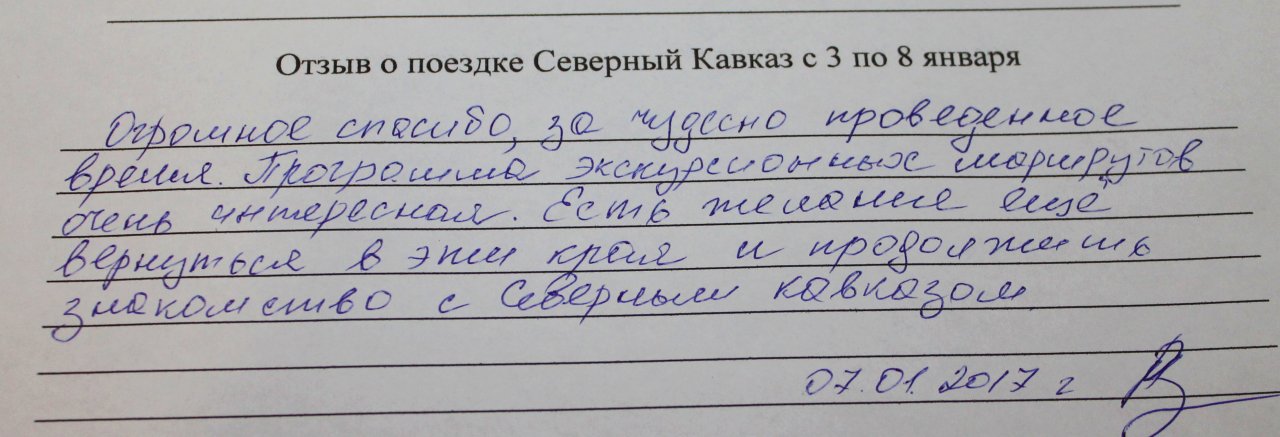 Отзыв о поездке Северный Кавказ с 3 по 8 января
Огромное спасибо, за чудесно проведенное
время. Программа экскурсионных маршрутов
очень интересная. Есть желание ещё
вернуться в эти края и продолжить
знакомство с Северным кавказом
07.01.2017 г